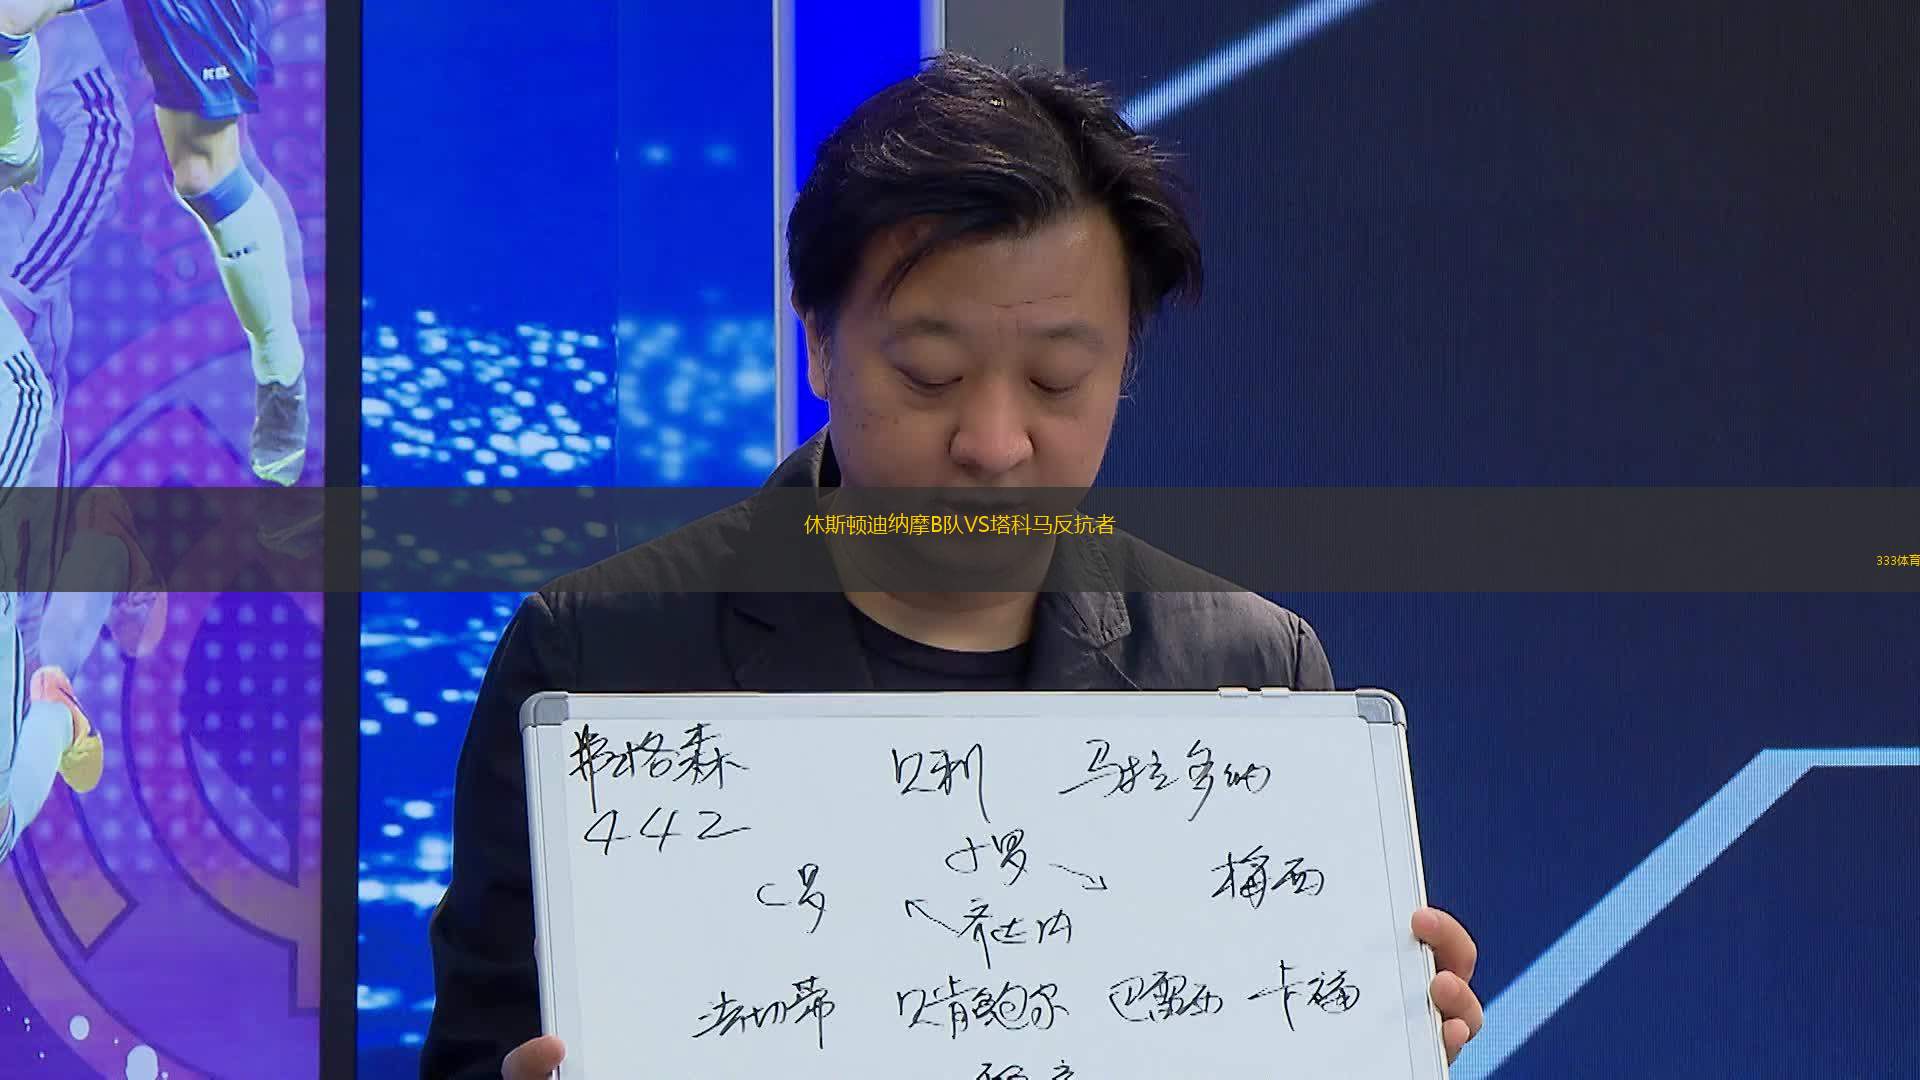 休斯顿迪纳摩B队VS塔科马反抗者
333体育
弗格森 贝利 马拉多纳
442
小罗
C罗 梅西
齐达内
法切蒂 贝肯鲍尔 巴雷西 卡福